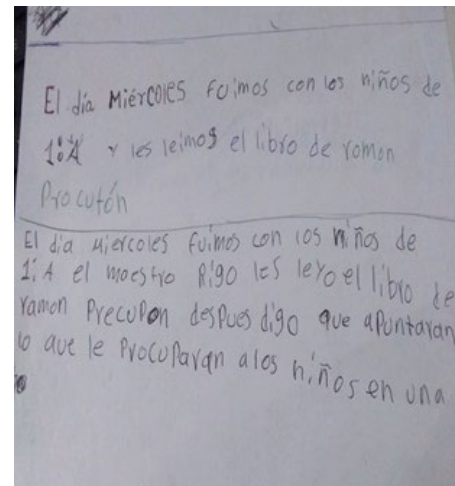 El día Miércoles fuimos con los niños de
1:A y les leimos el libro de romon
Procutón
El dia Miercoles fuimos con los niños de
1: A el maestro Rigo les leyo el libro de
ramon Precupon despues digo que apuntaran
lo que le Procuparan a los niños en una